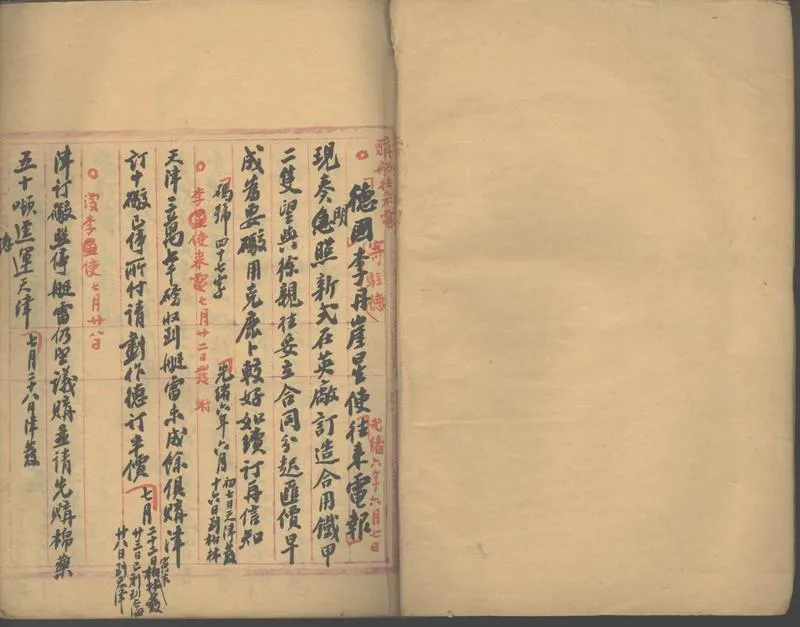 購船往來電
寄駐德
德國李丹崖星使往來電報
光緒六年六月七日
現奏明照新式在英廠訂造合用鐵甲
二隻望與徐親往妥立合同分起匯價早
成若要礮用克鹿卜較好如續訂再信知
碼號四十七字
光緒六年六月
初七日天津發
十六日到柏林
李星使來電七月廿二日發
天津三萬七千磅收到艇雷未成餘俱購津
訂十礮已停所付請劃作德訂半價
七月
二十二日柏林發
廿三日已刻到上海
廿八日到天津
復李星使七月廿八
津訂礮照停艇雷仍望議購並請先購棉藥
五十噸逕運天津
七月二十八日津發